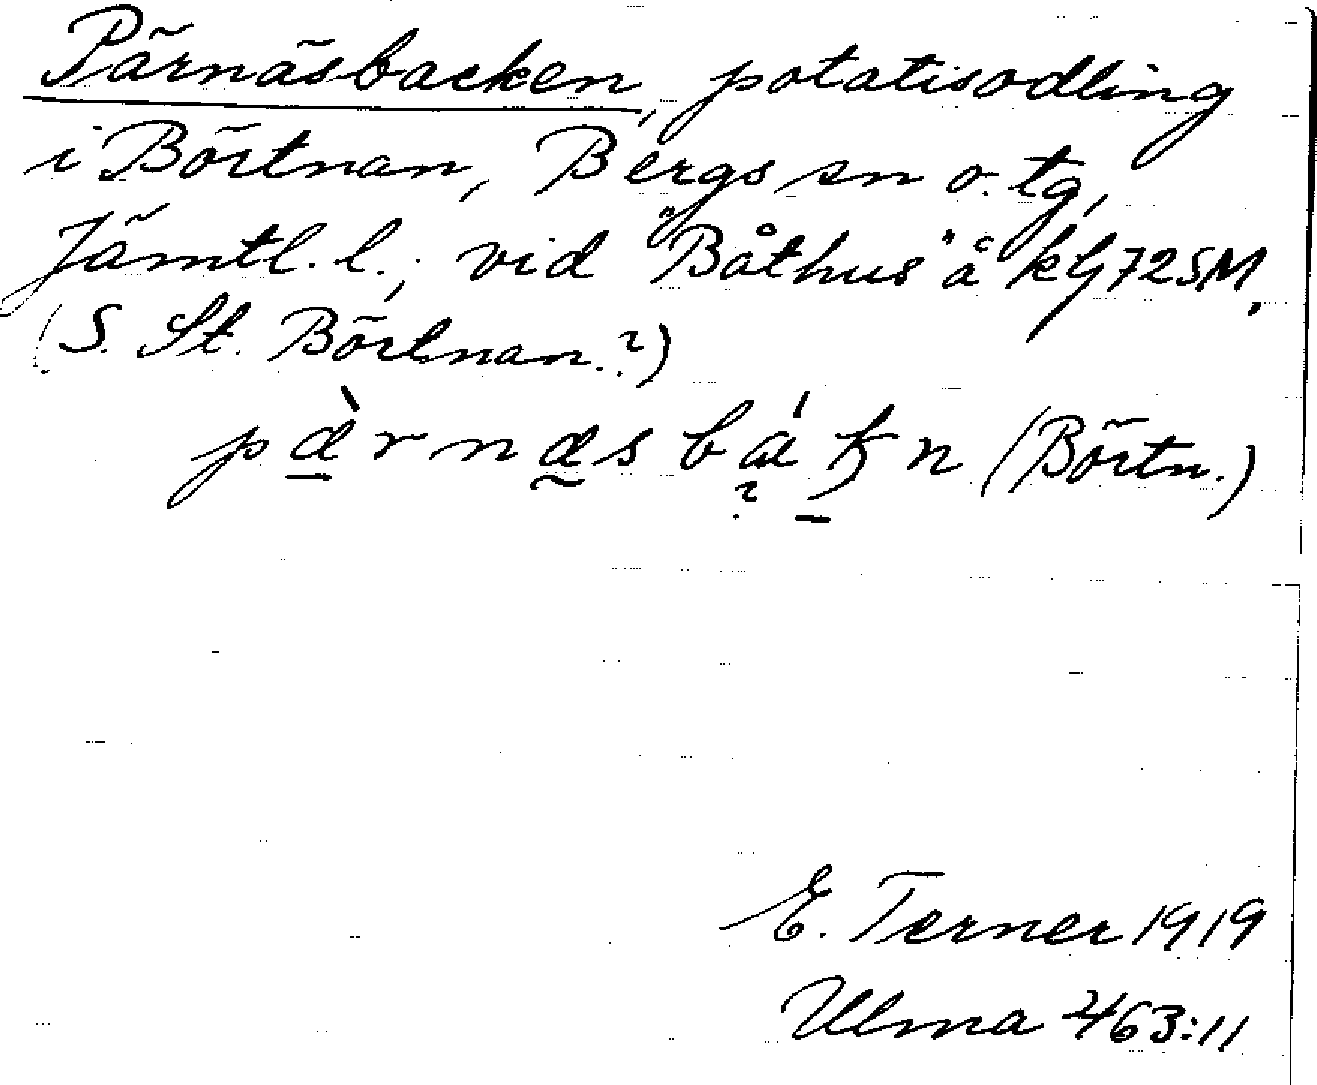 Pärnäsbacken, potatisodling
i Börtnan, Bergs sn o. tg,
Jämtl. l., vid "Båthus" å kbl 72SM.
(S. St. Börtnan.?)
pæ̀rnæsb (Börtn.)
E. Terner 1919
Ulma 463:11